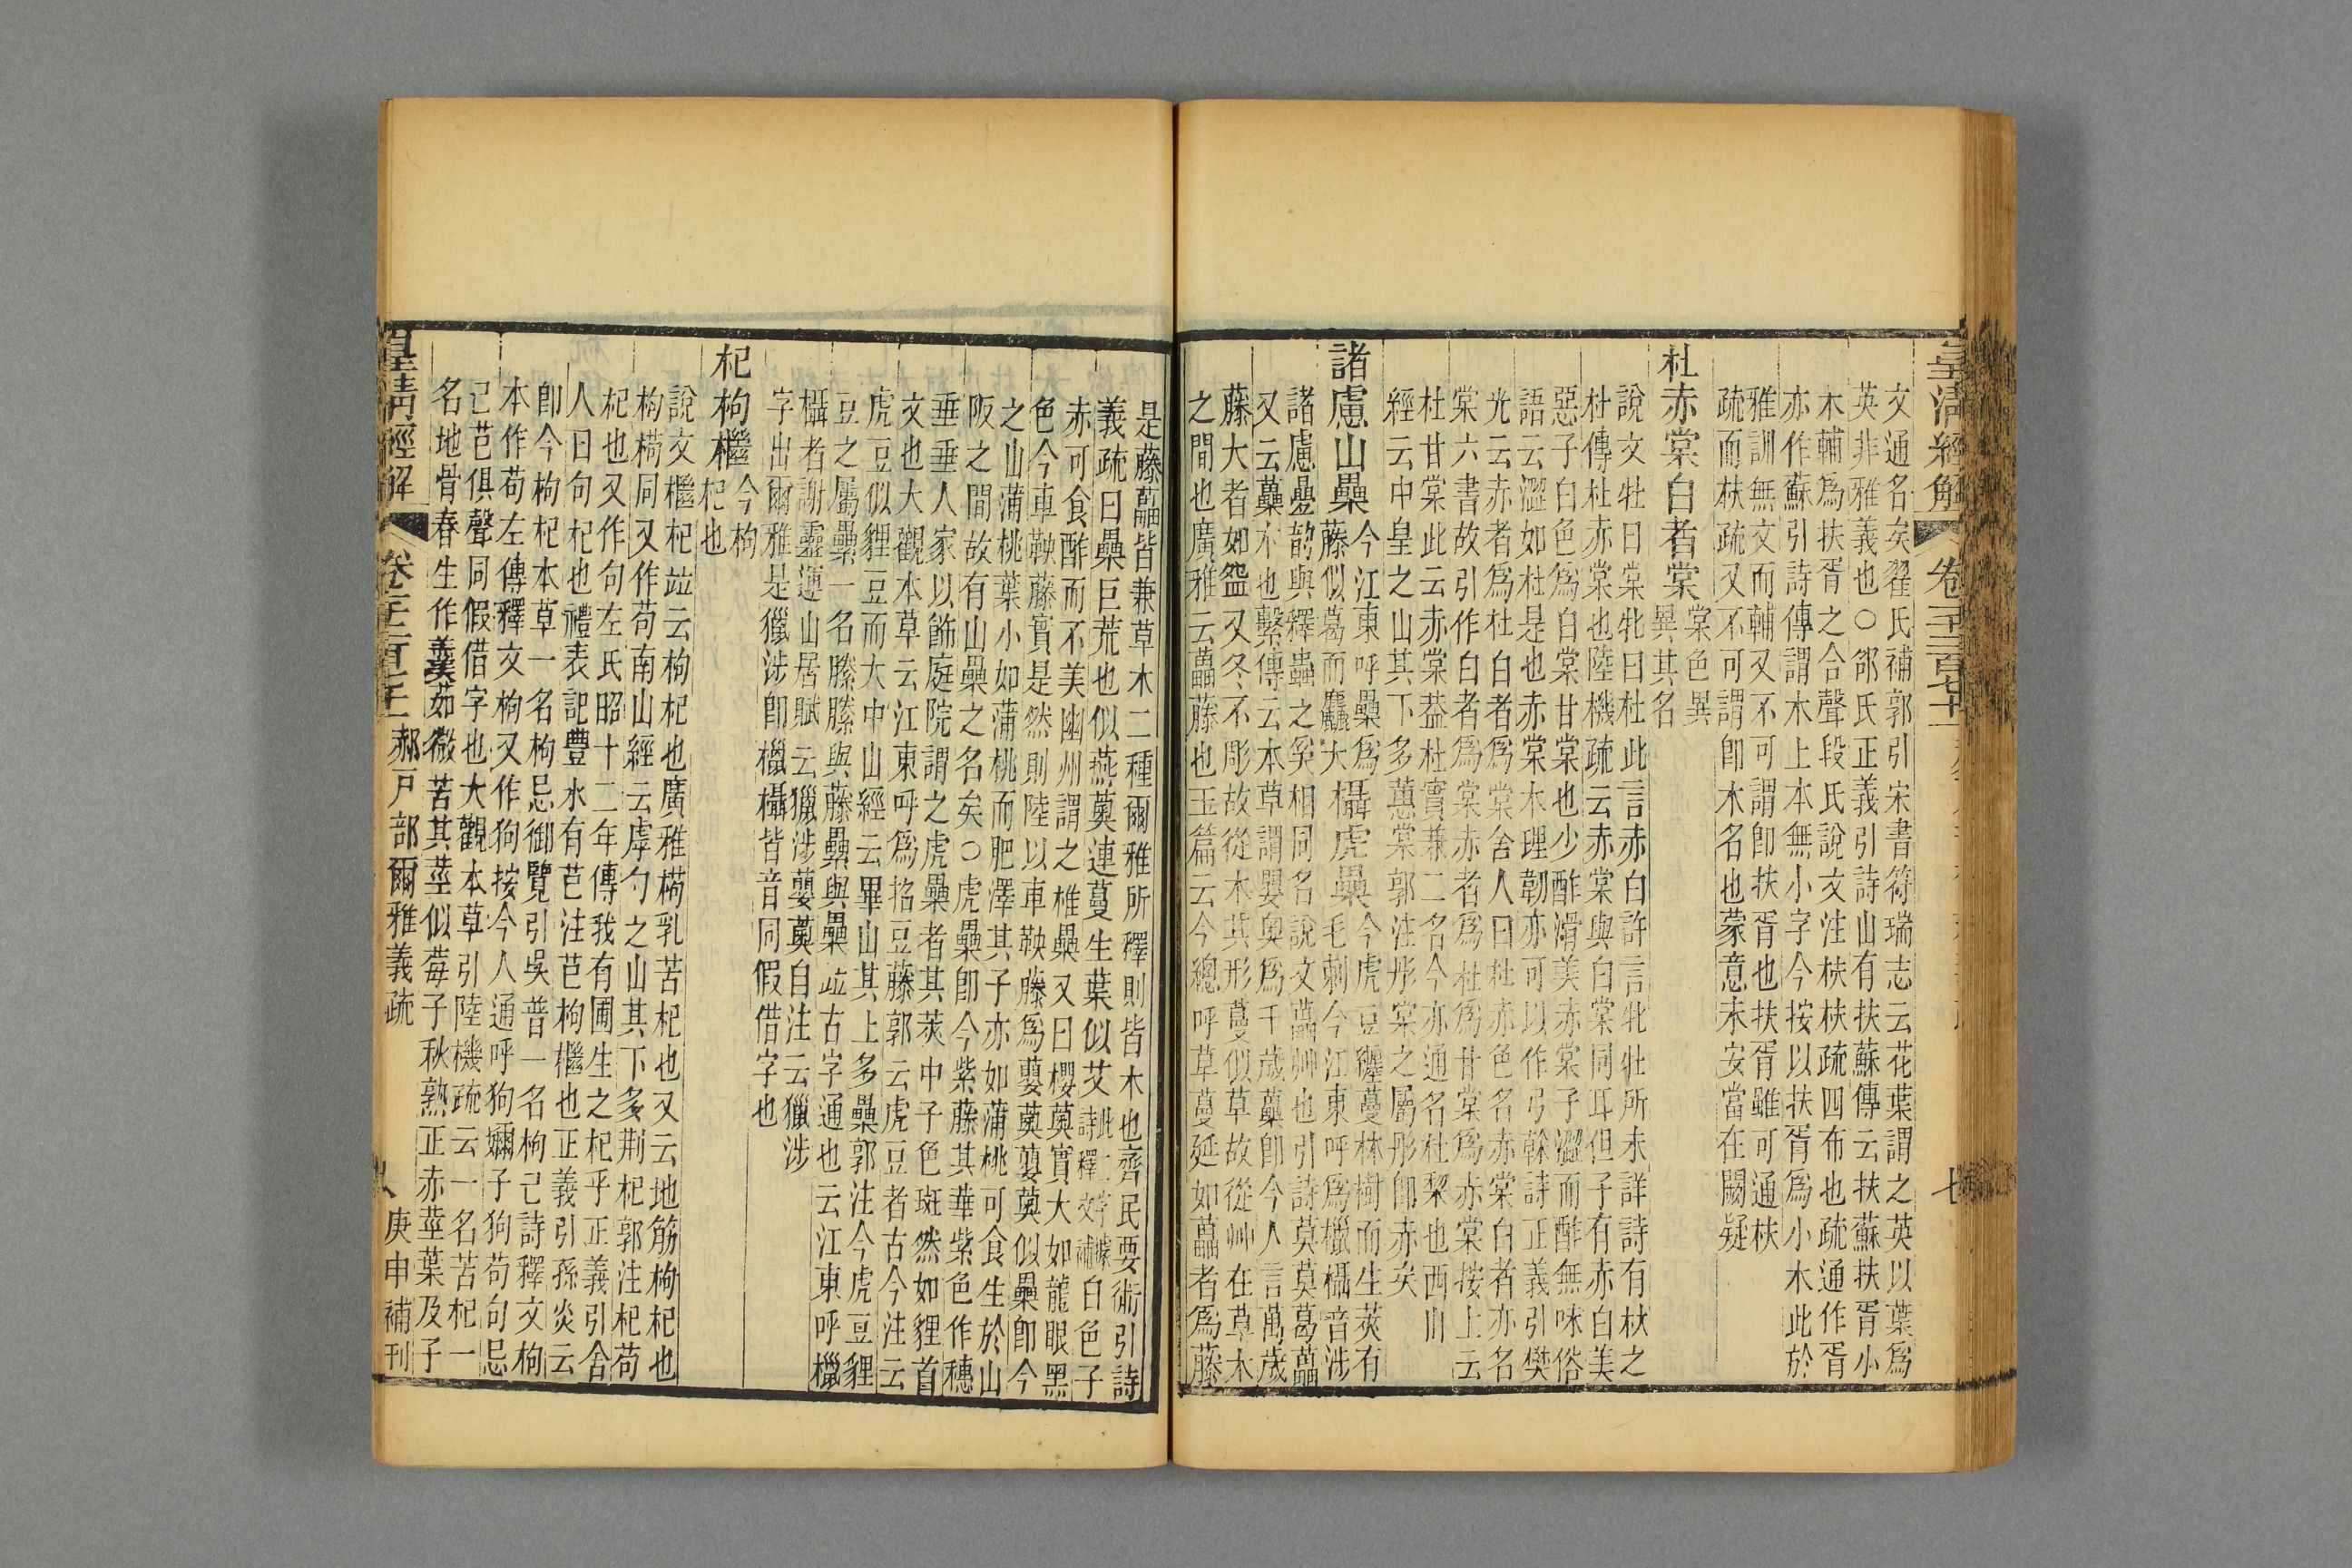 皇清經解
七
文通名矣翟氏補郭引宋書符瑞志云花葉謂之英以葉爲
英非雅義也○郤氏正義引詩山有扶蘇傳云扶蘇扶胥小
木輔爲扶胥之合聲段氏說文注枎枎疏四布也疏通作胥
亦作蘇引詩傳謂木上本無小字今按以扶胥爲小木此於
雅訓無文而輔又不可謂卽扶胥也扶胥雖可通枎
疏而枎疏又不可謂卽木名也蒙意未安當在闕疑
杜赤棠白者棠
棠色異
異其名
說文牡曰棠牝曰杜此言赤白許言牝牡所未詳詩有杕之
杜傳杜赤棠也陸機疏云赤棠與白棠同耳但子有赤白美
惡子白色爲白棠甘棠也少酢滑美赤棠子澀而酢無味俗
語云澀如杜是也赤棠木理韌亦可以作弓榦詩正義引樊
光云赤者爲杜白者爲棠舍人曰杜赤色名赤棠白者亦名
棠六書故引作白者爲棠赤者爲杜爲甘棠爲赤棠按上云
杜甘棠此云赤棠葢杜實兼二名今亦通名杜棃也西山
經云中皇之山其下多蕙棠郭注彤棠之屬彤卽赤矣
諸慮山櫐
今江東呼櫐爲
藤似葛而麤大
欇虎櫐
今虎豆纏蔓林樹而生莢有
毛刺今江東呼爲欇音涉
諸慮疊韵與釋蟲之奚相同名說文藟艸也引詩莫莫葛藟
又云虆木也繫傳云本草謂蘡奥爲千歲虆卽今人言萬歲
藤大者如盌又冬不彫故從木其形蔓似草故從艸在草木
之間也廣雅云藟藤也玉篇云今總呼草蔓延如藟者爲藤
是藤藟皆兼草木二種爾雅所釋則皆木也齊民要術引詩
義疏曰櫐巨荒也似燕薁連蔓生葉似艾
此二字據
詩釋文補
白色子
赤可食酢而不美幽州謂之椎櫐又曰櫻薁實大如龍眼黑
色今車鞅藤實是然則陸以車鞅藤爲蘡薁蘡薁似櫐卽今
之山蒲桃葉小如蒲桃而肥澤其子亦如蒲桃可食生於山
阪之間故有山櫐之名矣○虎櫐卽今紫藤其華紫色作穗
垂垂人家以飾庭院謂之虎櫐者其莢中子色斑然如貍首
文也大觀本草云江東呼爲招豆藤郭云虎豆者古今注云
虎豆似貍豆而大中山經云畢山其上多櫐郭注今虎豆貍
豆之屬櫐一名縢縢與藤櫐與櫐竝古字通也云江東呼欇
欇者謝靈運山居賦云獵涉蘡薁自注云獵涉
字出爾雅是獵涉卽欇欇皆音同假借字也
杞枸檵
今枸
杞也
說文檵杞竝云枸杞也廣雅榒乳苦杞也又云地筋枸杞也
枸榒同又作苟南山經云虖勺之山其下多荆杞郭注杞苟
杞也又作句左氏昭十二年傳我有圃生之杞乎正義引舍
人曰句杞也禮表記豐水有芑注芑枸檵也正義引孫炎云
卽今枸杞本草一名枸忌御覽引吳普一名枸己詩釋文枸
本作苟左傳釋文枸又作狗按今人通呼狗嬭子狗苟句忌
己芑俱聲同假借字也大觀本草引陸機疏云一名苦杞一
名地骨春生作羹茹微苦其莖似莓子秋熟正赤莖葉及子
皇清經解
郝戸部爾雅義疏
八
庚申補刊